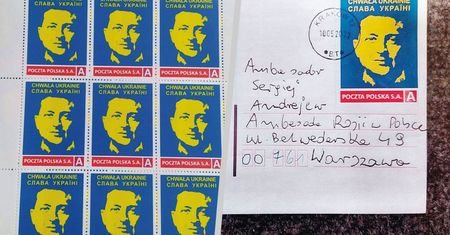 POCZTA POLSKA S.A. A
POCZTA POLSKA S.A. A
POCZTA POLSKA S.A. A
CHWAŁA UKRAINIE
СЛАВА УКРАЇНІ
POCZTA POLSKA S.A. A
CHWAŁA UKRAINIE
СЛАВА УКРАЇНІ
POCZTA POLSKA S.A. A
CHWAŁA UKRAINIE
СЛАВА УКРАЇНІ
POCZTA POLSKA S.A. A
CHWAŁA UKRAINIE
СЛАВА УКРАЇНІ
CHWAŁA UKRAINIE
СЛАВА УКРАЇНІ
CHWAŁA UKRAINIE
СЛАВА УКРАЇНІ
CHWAŁA UKRAINIE
СЛАВА УКРАЇНІ
POCZTA POLSKA S.A. A
Ambasador
Sergiej
Andrejew
Ambasada Rosji w Polsce
ul. Belwederska 49
00 761 Warszawa